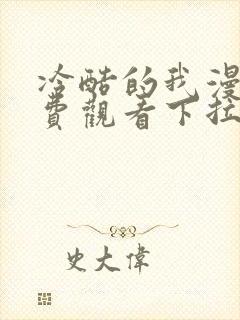 冷酷的我漫
費觀看下拉
史大偉